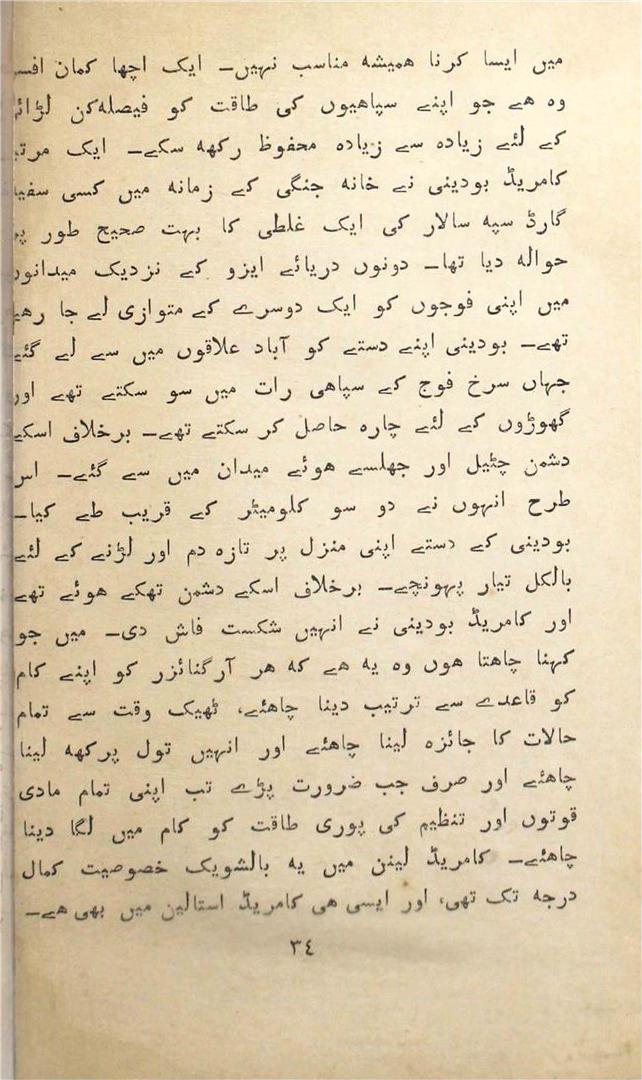 میں ایسا کرنا ھمیشہ مناسب نہیں۔ ایک اچھا کمان افسر
وہ ھے جو اپنے سپاھیوں کی طاقت کو فیصلہ‌کن لڑائی
کے لئے زیادہ سے زیادہ محفوظ رکھہ سکے۔ ایک مرتبہ
کامریڈ بودینی نے خانہ جنگی کے زمانہ میں کسی سفید
گارڈ سپہ سالار کی ایک غلطی کا بہت صحیح طور پر
حوالہ دیا تھا۔ دونوں دریائے ایزو کے نزدیک میدانوں
میں اپنی فوجوں کو ایک دوسرے کے متوازی لے جا رھے
تھے۔ بودینی اپنے دستے کو آباد علاقوں میں سے لے گئے
جہاں سرخ فوج کے سپاھی رات میں سو سکتے تھے اور
گھوڑوں کے لئے چارہ حاصل کر سکتے تھے۔ برخلاف اسکے
دشمن چٹیل اور جھلسے ھوئے میدان میں سے گئے۔ اس
طرح انہوں نے دو سو کلومیٹر کے قریب طے کیا۔
بودینی کے دستے اپنی منزل پر تازہ دم اور لڑنے کے لئے
بالکل تیار پہونچے۔ برخلاف اسکے دشمن تھکے ھوئے تھے
اور کامریڈ بودینی نے انہیں شکست فاش دی۔ میں جو
کہنا چاھتا ھوں وہ یہ ھے کہ ھر آرگنائزر کو اپنے کام
کو قاعدے سے ترتیب دینا چاھئے، ٹھیک وقت سے تمام
حالات کا جائزہ لینا چاھئے اور انہیں تول پرکھہ لینا
چاھئے اور صرف جب ضرورت پڑے تب اپنی تمام مادی
قوتوں اور تنظیم کی پوری طاقت کو کام میں لگا دینا
چاھئے۔ کامریڈ لینن میں یہ بالشویک خصوصیت کمال
درجہ تک تھی، اور ایسی ھی کامریڈ استالین میں بھی ھے۔
۳٤